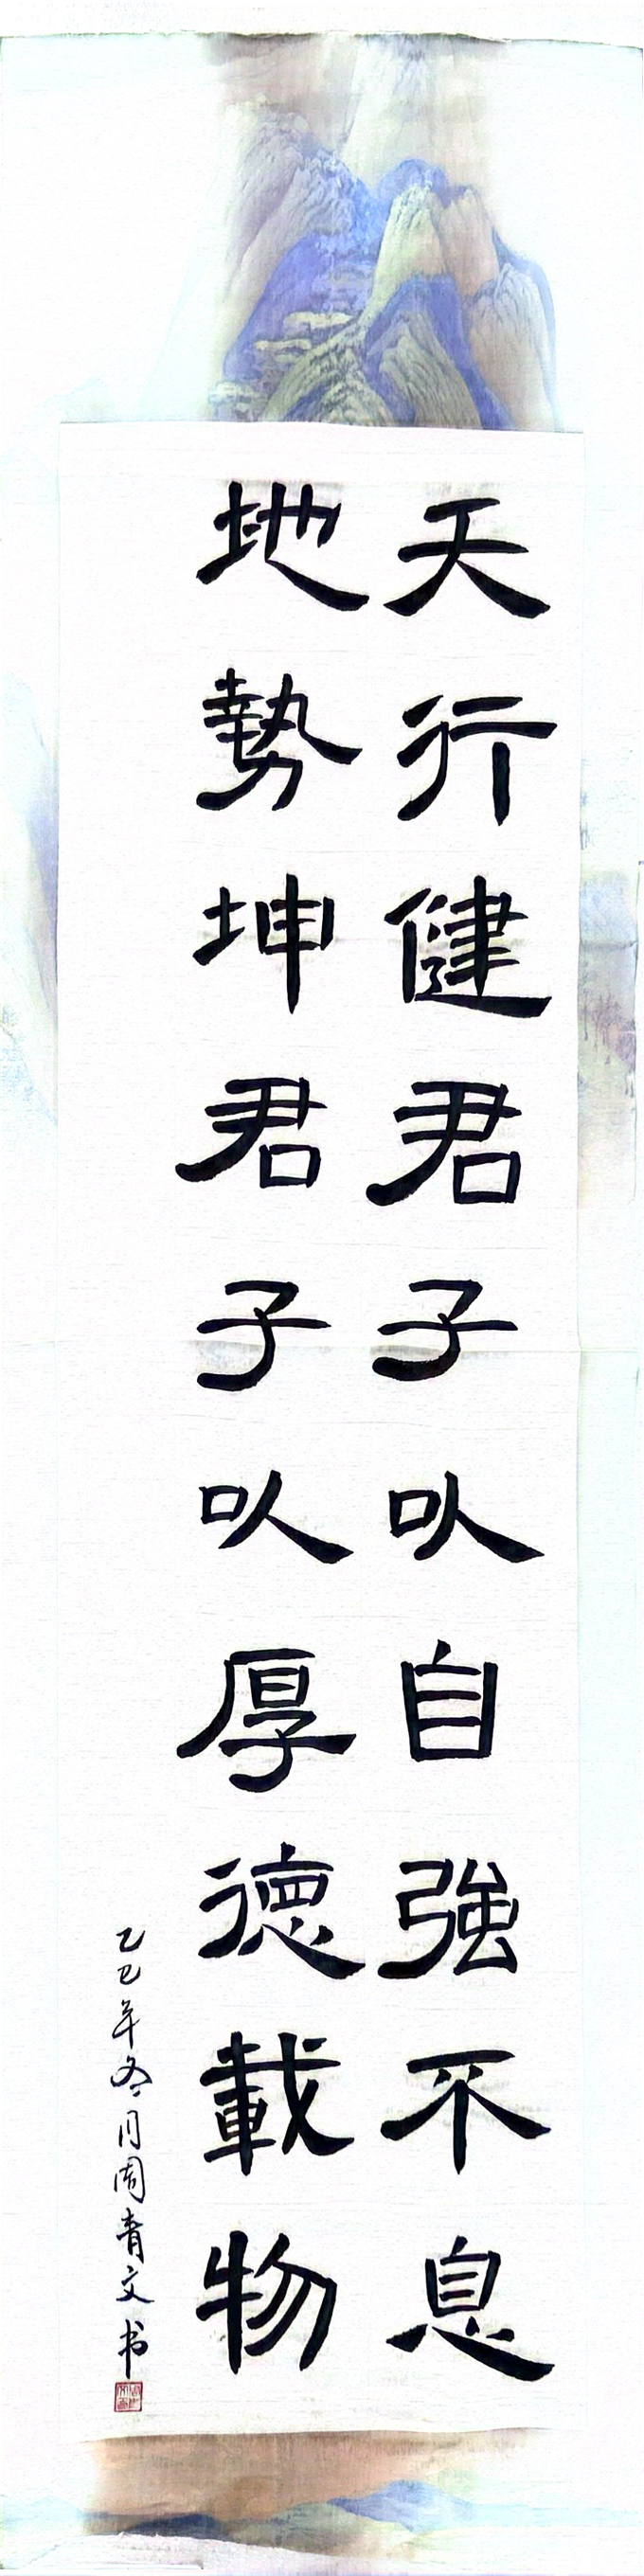 天行健君子以自強不息
地勢坤君子以厚德載物
乙巳年冬月周青文书